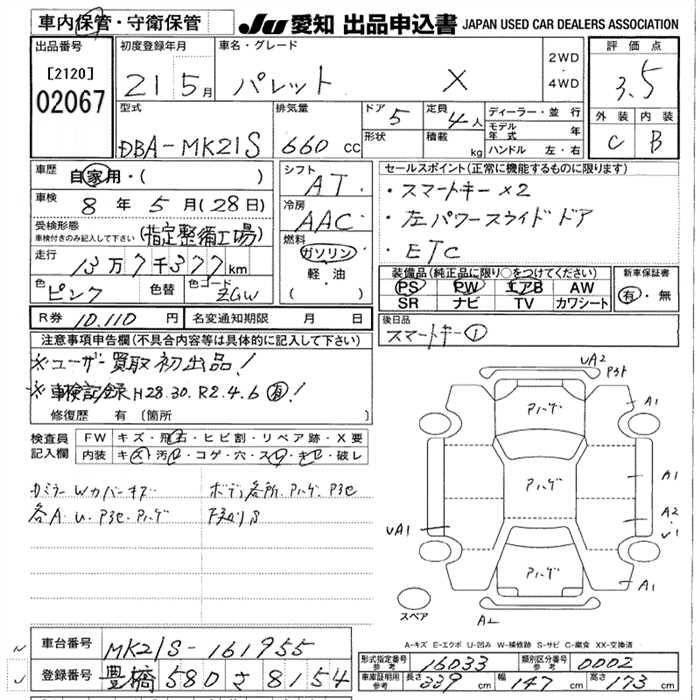 車内保管・守衛保管
JU 愛知 出品申込書 JAPAN USED CAR DEALERS ASSOCIATION
出品番号 初度登録年月 車名・グレード 評価点
[2120] 21 5月 パレット X 2WD・4WD 3.5
02067
型式 排気量 ドア 5 定員 4人 ディーラー・並行 外装 内装
DBA-MK21S 660 cc 形状 積載 kg モデル年式 年 C B
ハンドル 左・右
車歴 自家用・( )
シフト AT
セールスポイント(正常に機能するものに限ります)
車検 8年 5月(28日)
・スマートキー×2
受検形態 車検付きのみ記入して下さい (指定整備工場)
冷房 AAC
・左パワースライドドア
走行 13万7千377km
燃料 ガソリン・軽油 ( )
・ETC
色 ピンク 色替 色コード ZGW
装備品(純正品に限り○をつけてください) 新車保証書
PS PW エアB AW 有・無
SR ナビ TV カワシート
R券 10,110円 名変通知期限 月 日
後日品
スマートキー①
注意事項申告欄(不具合内容等は具体的に記入して下さい)
※ユーザー買取初出品!
※車検記録H28.30.R2.4.6 有!
修復歴 有(箇所
検査員記入欄 FW キズ・飛石・ヒビ割・リペア跡・X要
内装 キズ・汚レ・コゲ・穴・スレ・キレ・破レ
カミラーWカバーキズ ボディ各所.Pハゲ.Pヨセ
各A.U.Pヨセ.Pハゲ
UA2
A1
Pハゲ
Pハゲ
A1
A2
UA1
Pハゲ
A1
スペア
A2
A-キズ E-エクボ U-凹み W-補修跡 S-サビ C-腐食 XX-交換済
車台番号 MK21S-161955
登録番号 豊橋 580 さ 8154
形式指定番号 参考 16033 類別区分番号 参考 0002
車庫証明用 参考 長さ 339 cm 幅 147 cm 高さ 173 cm